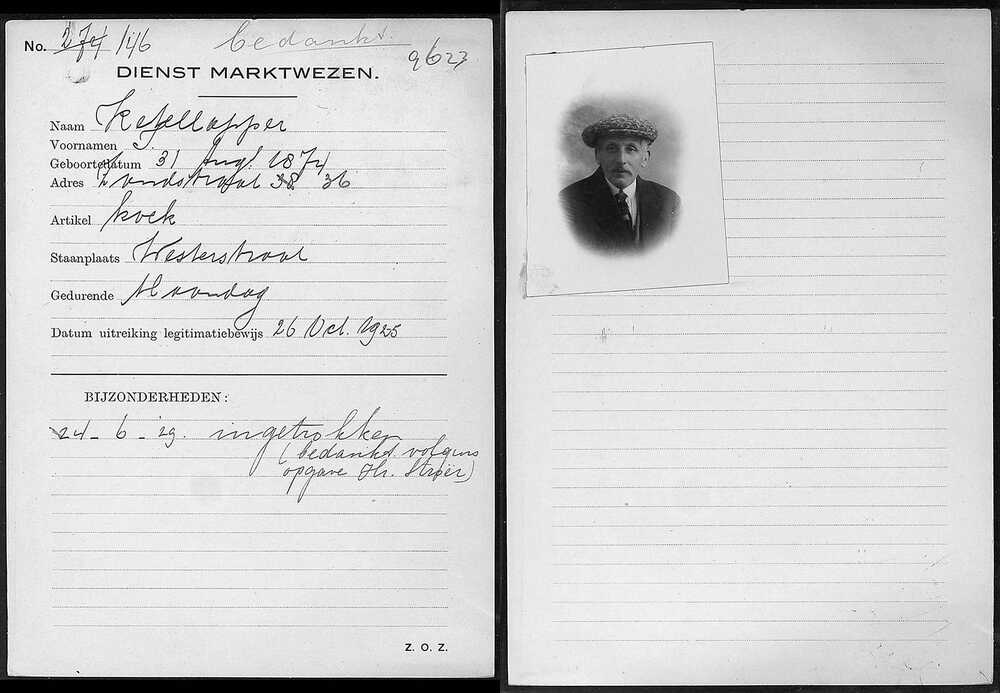 No. 274/146 bedankt.
9623
DIENST MARKTWEZEN.
Naam Ketellapper
Voornamen J
Geboortedatum 31 Aug 1874
Adres Zandstraat 38 36
Artikel koek
Staanplaats Westerstraat
Gedurende Maandag
Datum uitreiking legitimatiebewijs 26 Oct. 1925
BIJZONDERHEDEN:
24-6-29. ingetrokken
(bedankt volgens
opgave Hr. Ströer)
Z. O. Z.